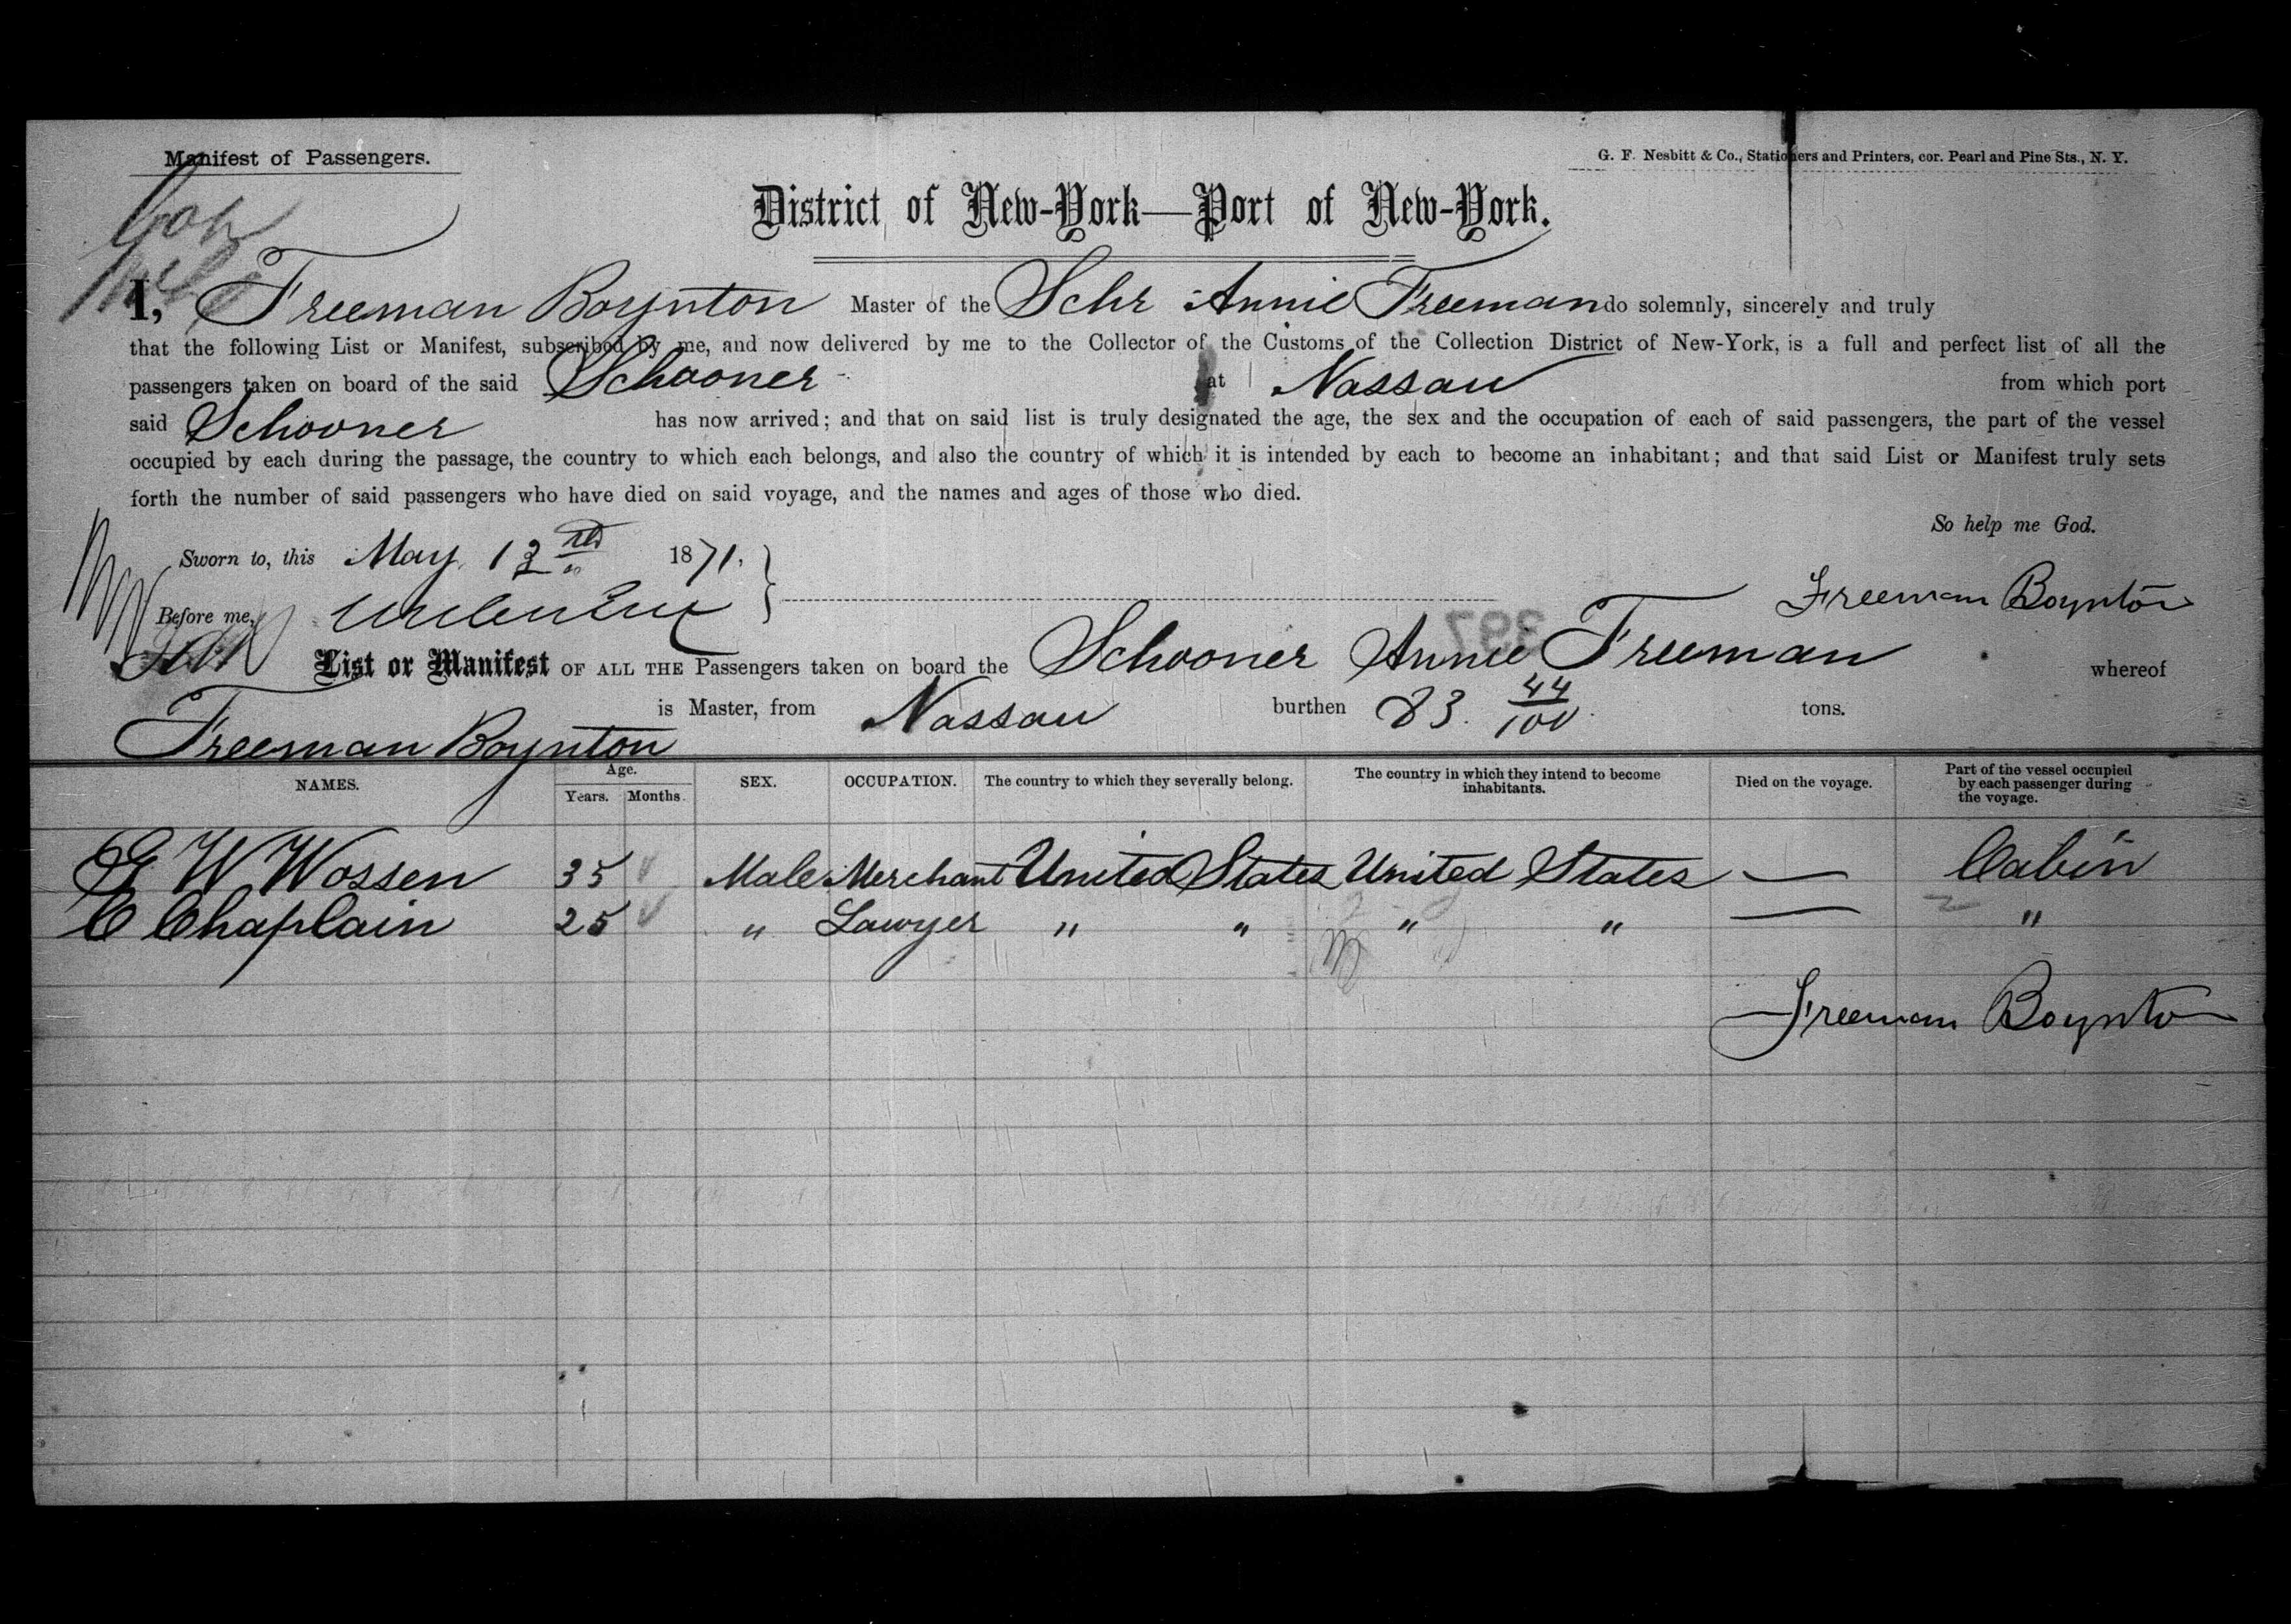 Manifest of Passengers.
G. F. Nesbitt & Co., Stationers and Printers, cor. Pearl and Pine Sts., N. Y.
District of New-York—Port of New-York.
I, Freeman Boynton Master of the Schr Annie Freeman do solemnly, sincerely and truly
that the following List or Manifest, subscribed by me, and now delivered by me to the Collector of the Customs of the Collection District of New-York, is a full and perfect list of all the
passengers taken on board of the said Schooner at Nassau from which port
said Schooner has now arrived; and that on said list is truly designated the age, the sex and the occupation of each of said passengers, the part of the vessel
occupied by each during the passage, the country to which each belongs, and also the country of which it is intended by each to become an inhabitant; and that said List or Manifest truly sets
forth the number of said passengers who have died on said voyage, and the names and ages of those who died.
So help me God.
Sworn to, this May 1871.
Before me,
Freeman Boynton
397
List or Manifest OF ALL THE Passengers taken on board the Schooner Annie Freeman whereof
Freeman Boynton is Master, from Nassau burthen 83 44/100 tons.
NAMES. Age. Years. Months. SEX. OCCUPATION. The country to which they severally belong. The country in which they intend to become inhabitants. Died on the voyage. Part of the vessel occupied by each passenger during the voyage.
W Wossen 35 Male Merchant United States United States — Cabin
C Chaplain 25 " Lawyer " " " " — "
Freeman Boynton